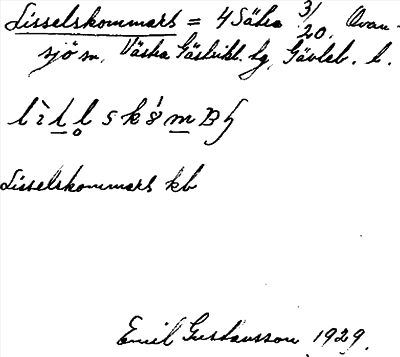 Lisselskommars = 4 Sätra 3/20, Ovan-
sjö sn, Västra Gästrikl. hg, Gävleb. l.
Lisselskommars kb
Emil Gustavsson 1929.